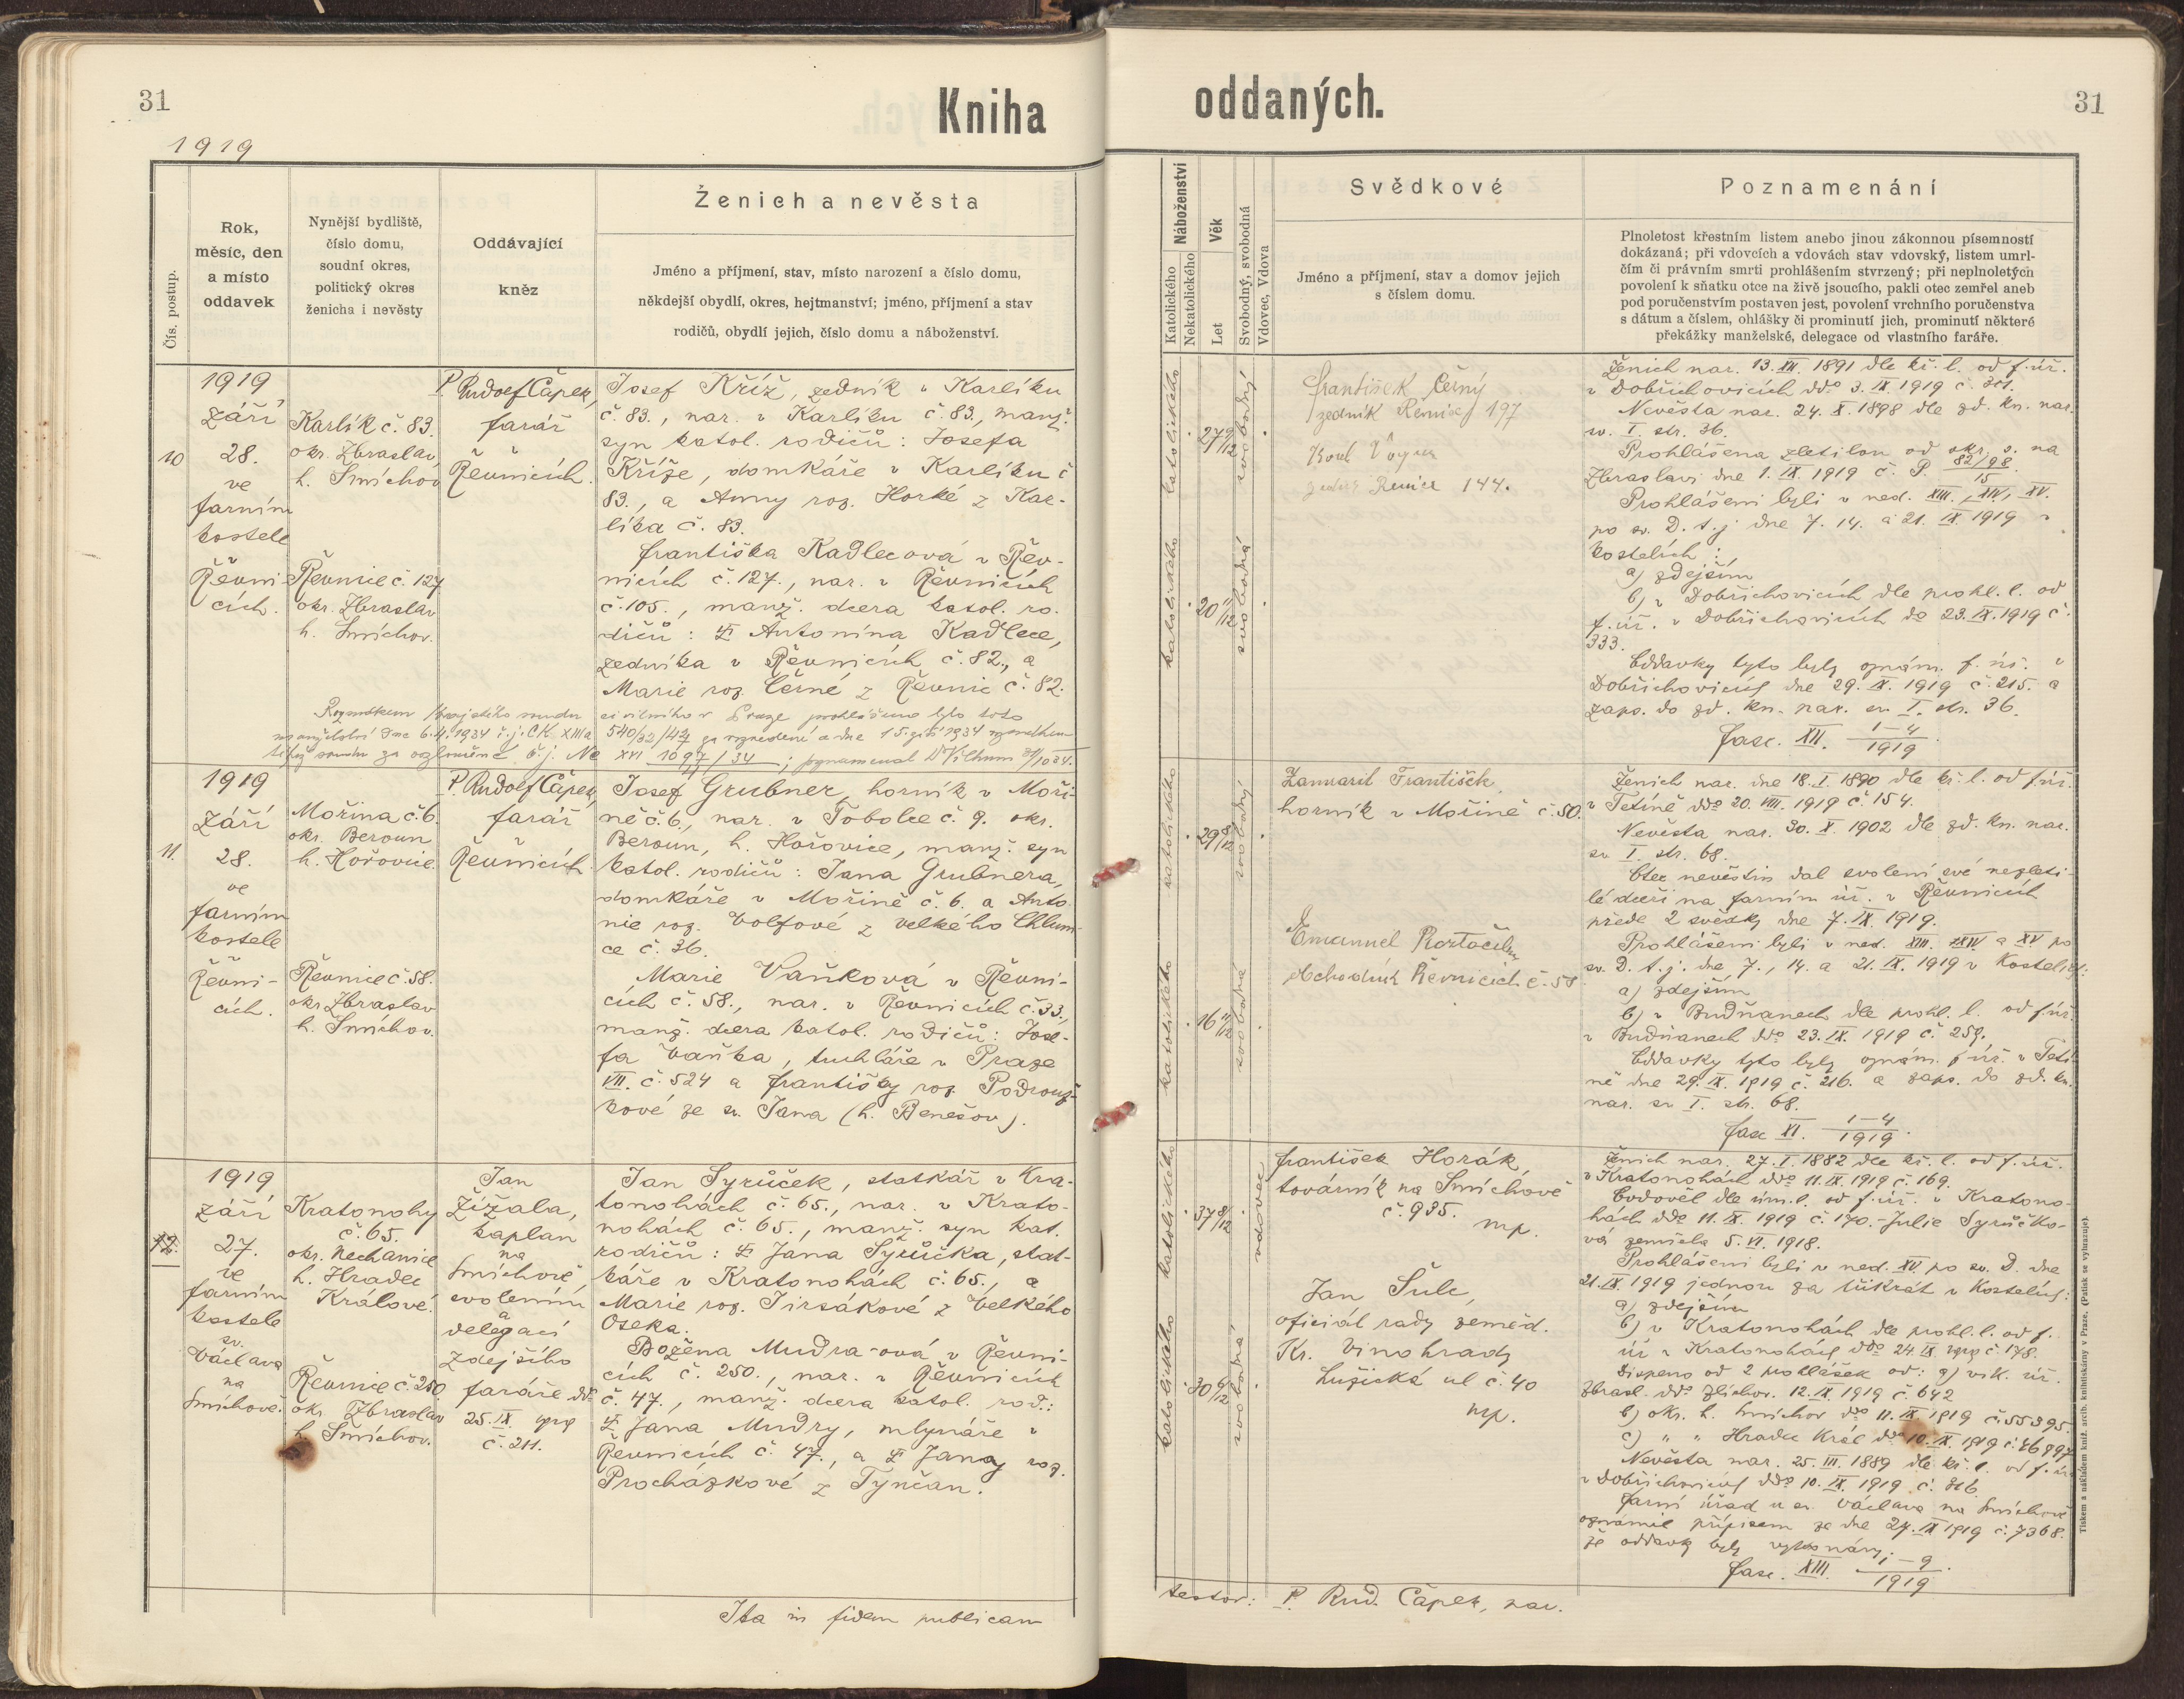 31
Kniha
1919
Čís. postup.
Rok,
měsíc, den
a místo
oddavek
Nynější bydliště,
číslo domu,
soudní okres,
politický okres
ženicha i nevěsty
Oddávající
kněz
Ženich a nevěsta
Jméno a příjmení, stav, místo narození a číslo domu,
někdejší obydlí, okres, hejtmanství; jméno, příjmení a stav
rodičů, obydlí jejich, číslo domu a náboženství.
10
1919
září
28.
ve
farním
kostele
Řevni-
cích.
Karlík č. 83.
okr. Zbraslav
h. Smíchov
Řevnice č. 127
okr. Zbraslav
h. Smíchov.
P. Rudolf Čapek,
farář
v
Řevnicích.
Josef Kříž, zedník v Karlíku
č. 83., nar. v Karlíku č. 83., manž.
syn katol. rodičů: Josefa
Kříže, domkáře v Karlíku č
83., a Anny roz. Horké z Kar-
líka č. 83.
Františka Kadlecová v Řev-
nicích č. 127., nar. v Řevnicích
č. 105., manž. dcera katol. ro-
dičů: Antonína Kadlece,
zedníka v Řevnicích č. 82., a
Marie roz. Černé z Řevnic č. 82.
Rozsudkem krajského soudu civilního v Praze prohlášeno bylo toto
manželství dne 6.4.1934 č.j. CK XIIIa 540/32/42 za rozvedené a dne 15. září 1934 rozsudkem
téhož soudu za rozloučené č.j. Nc XVI 1097/34
11.
1919
září
28.
ve
farním
kostele
v
Řevni-
cích.
Mořina č. 6.
okr. Beroun
h. Hořovice.
Řevnice č. 58.
okr. Zbraslav
h. Smíchov.
P. Rudolf Čapek,
farář
v
Řevnicích.
Josef Grubner, horník v Moři-
ně č. 6., nar. v Tobolce č. 9. okr.
Beroun, h. Hořovice, manž. syn
katol. rodičů: Jana Grubnera,
domkáře v Mořině č. 6. a Anto-
nie roz. Volfové z Velkého Chlum-
ce č. 36.
Marie Vaňková v Řevni-
cích č. 58., nar. v Řevnicích č. 33.,
manž. dcera katol. rodičů: Jose-
fa Vaňka, truhláře v Praze
VII. č. 524 a Františky roz. Podrouž-
kové ze sv. Jana (h. Benešov).
12.
1919
září
27.
ve
farním
kostele
sv.
Václava
na
Smíchově.
Kratonohy
č. 65.
okr. Nechanice
h. Hradec
Králové.
Řevnice č. 250
okr. Zbraslav
h. Smíchov.
Jan
Žížala,
kaplan
na
Smíchově,
svolením
a
delegací
zdejšího
faráře ddo
25. IX. 1919
č. 211.
Jan Syrůček, statkář v Kra-
tonohách č. 65., nar. v Krato-
nohách č. 65., manž. syn kat.
rodičů: Jana Syrůčka, stat-
káře v Kratonohách č. 65., a
Marie roz. Jirsákové z Velkého
Oseka.
Božena Mudra-ová v Řevni-
cích č. 250., nar. v Řevnicích
č. 47., manž. dcera katol. rod.:
Jana Mudry, mlynáře v
Řevnicích č. 47., a Jany roz.
Procházkové z Týnčan.
Ita in fidem publicam
oddaných.
31
Náboženství
Katolického
Nekatolického
Věk
Let
Svobodný, svobodná
Vdovec, Vdova
Svědkové
Jméno a příjmení, stav a domov jejich
s číslem domu.
Poznamenání
Plnoletost křestním listem anebo jinou zákonnou písemností
dokázaná; při vdovcích a vdovách stav vdovský, listem úmrt-
ním či právním smrti prohlášením stvrzený; při neplnoletých
povolení k sňatku otce na živě jsoucího, pakli otec zemřel aneb
pod poručenstvím postaven jest, povolení vrchního poručenstva
s dátum a číslem, ohlášky či prominutí jich, prominutí některé
překážky manželské, delegace od vlastního faráře.
katolického
27 9/12
svobodný
katolického
20 11/12
svobodná
František Černý
zedník Řevnice 197
Řevnice 144.
Ženich nar. 13. XII. 1891 dle kř. l. od f. úř.
v Dobřichovicích ddo 3. IX. 1919 č. 301.
Nevěsta nar. 24. X. 1898 dle zd. kn. nar.
sv. I. str. 36.
Prohlášena zletilou od okr. s. na
Zbraslavi dne 1. IX. 1919 č. P. 82/98 15
Prohlášeni byli v ned. XIII., XIV., XV.
po sv. D. t. j. dne 7. 14. a 21. IX. 1919 v
kostelích:
a) zdejším
b) v Dobřichovicích dle prohl. l. od
f. úř. v Dobřichovicích do 23. IX. 1919 č.
333.
Oddavky tyto byly oznám. f. úř. v
Dobřichovicích dne 29. IX. 1919 č. 215. a
zaps. do zd. kn. nar. sv. I. str. 36.
fasc. XII. 1-4/1919.
katolického
29 8/12
svobodný
katolického
16 11/12
svobodná
František
horník v Mořině č. 50.
Emanuel
obchodník Řevnicích č. 58
Ženich nar. dne 18. I. 1890 dle kř. l. od f. úř.
v Tetíně ddo 20. VIII. 1919 č. 154.
Nevěsta nar. 30. X. 1902 dle zd. kn. nar.
sv. I. str. 68.
Otec nevěstin dal svolení své nezleti-
lé dceři na farním úř. v Řevnicích
přede 2 svědky dne 7. IX. 1919.
Prohlášeni byli v ned. XIII. XIV a XV po
sv. D. t. j. dne 7., 14. a 21. IX. 1919 v kostelích:
a) zdejším
b) v Budňanech dle prohl. l. od f. úř.
v Budňanech ddo 23. IX. 1919 č. 259.
Oddavky tyto byly oznám. f. úř. v Tetí-
ně dne 29. IX. 1919 č. 216. a zaps. do zd. kn.
nar. sv. I. str. 68.
fasc XI. 1-4/1919.
katolického
37 8/12
vdovec
katolického
30 6/12
svobodná
František Horák,
továrník na Smíchově
č. 935.
mp.
Jan Šulc,
oficiál rady zeměd.
Kr. Vinohrady
Lužická ul č. 40
mp.
Ženich nar. 27. I. 1882 dle kř. l. od f. úř.
v Kratonohách ddo 11. IX. 1919 č. 169.
Ovdověl dle úm. l. od f. úř. v Kratono-
hách ddo 11. IX. 1919 č. 170. - Julie Syrůčko-
vá zemřela 5. VI. 1918.
Prohlášeni byli v ned. XV. po sv. D. dne
21. IX. 1919 jednou za třikrát v kostelích:
a) zdejším
b) v Kratonohách dle prohl. l. od f.
úř v Kratonohách ddo 24. IX. 1919 č. 178.
Dispens od 2 prohlášek od: a) vik. úř.
zbrasl. ddo Zlíchov. 12. IX 1919 č. 642
b) okr. h. Smíchov ddo 11. IX 1919 č. 55395.
c) " " Hradec Král ddo 10. IX. 1919
Nevěsta nar. 25. III. 1889 dle kř. l. od f. úř.
v Dobřichovicích ddo 10. IX. 1919 č. 316.
Farní úřad u sv. Václava na Smíchově
oznámil přípisem ze dne 27. IX 1919 č. 7368.
že oddavky byly vykonány.
fasc. XIII. 1-9/1919.
testor: P. Rud. Čapek, par.
Tiskem a nákladem kníž. arcib. knihtiskárny v Praze. (Patisk se vyhrazuje).